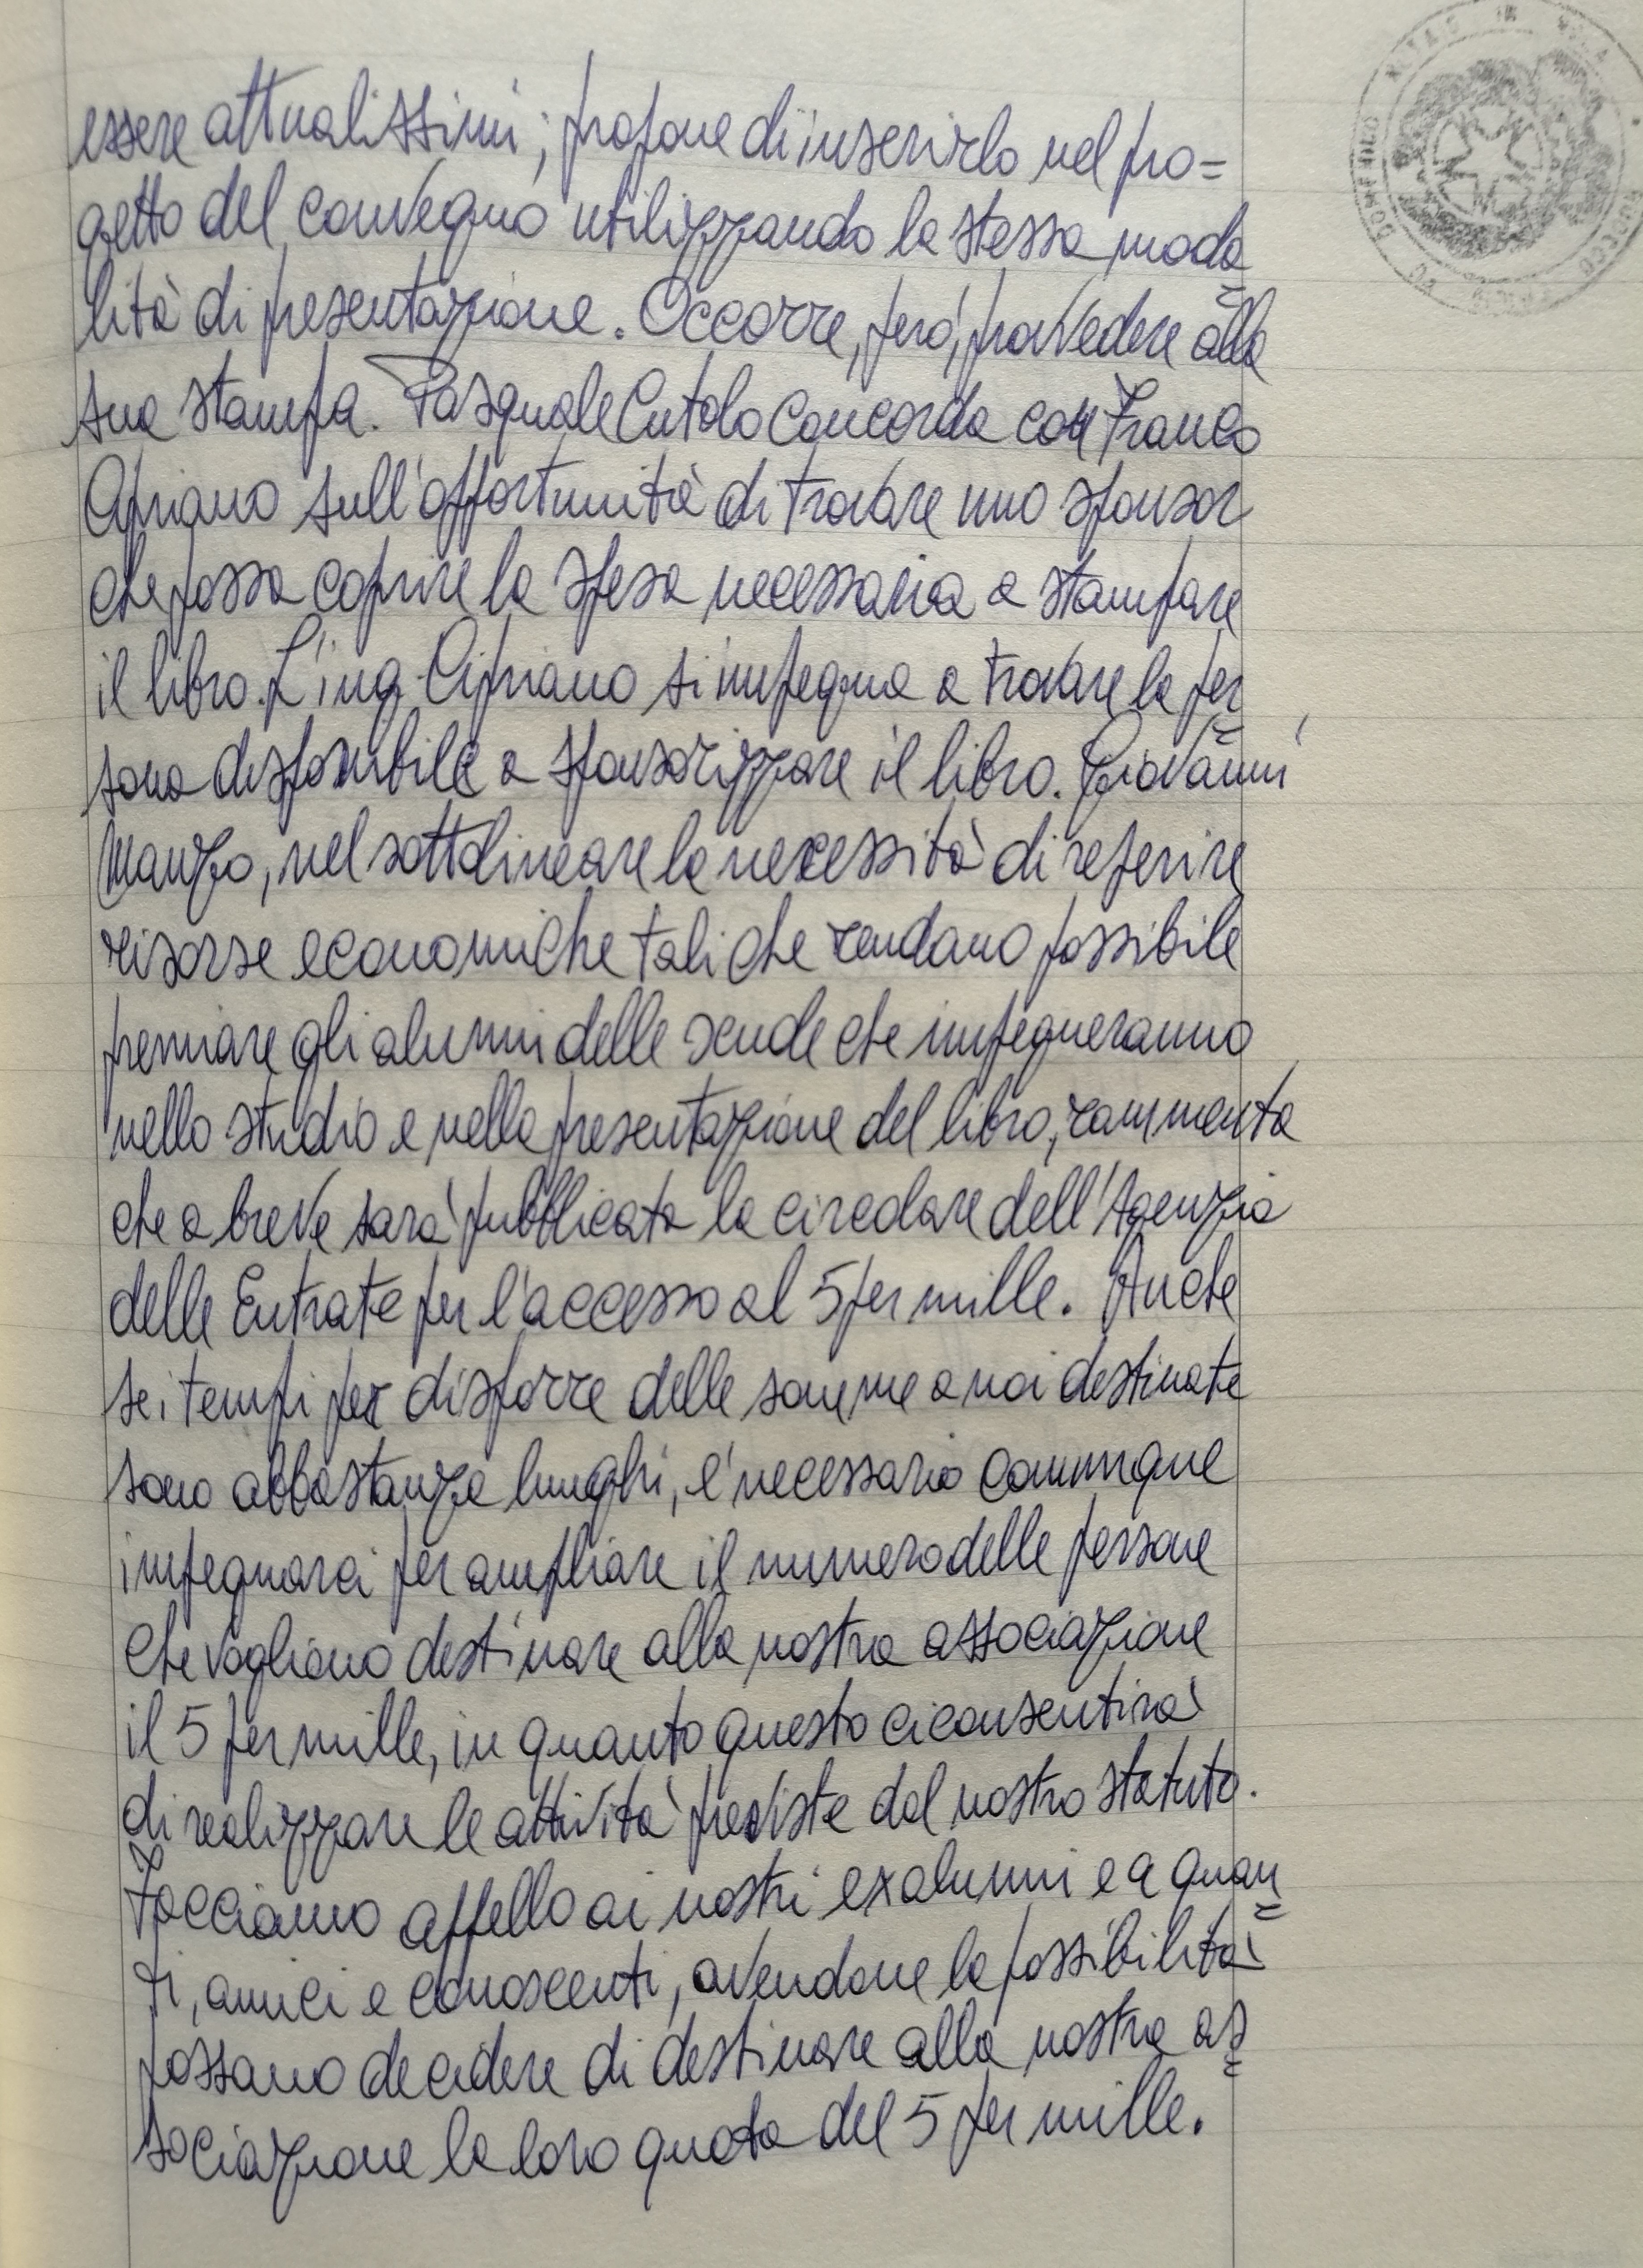 essere attualissimi; propone di inserirlo nel pro=
getto del convegno utilizzando la stessa moda=
lità di presentazione. Occorre, però, provvedere alla
sua stampa. Pasquale Cutolo concorda con Franco
Cipriano sull'opportunità di trovare uno sponsor
che possa coprire la spesa necessaria a stampare
il libro. L'ing. Cipriano si impegna a trovare la per=
sona disponibile a sponsorizzare il libro. Giovanni
Manzo, nel sottolineare la necessità di reperire
risorse economiche tali che rendano possibile
premiare gli alunni delle scuole che impegneranno
nello studio e nella presentazione del libro, rammenta
che a breve sarà pubblicata la circolare dell'Agenzia
delle Entrate per l'accesso al 5 per mille. Anche
se i tempi per disporre delle somme a noi destinate
sono abbastanza lunghi, è necessario comunque
impegnarci per ampliare il numero delle persone
che vogliono destinare alla nostra associazione
il 5 per mille, in quanto questo ci consentirà
di realizzare le attività previste dal nostro statuto.
Facciamo appello ai nostri exalunni e a quan=
ti, amici e conoscenti, avendone la possibilità
possano decidere di destinare alla nostra as=
sociazione la loro quota del 5 per mille.